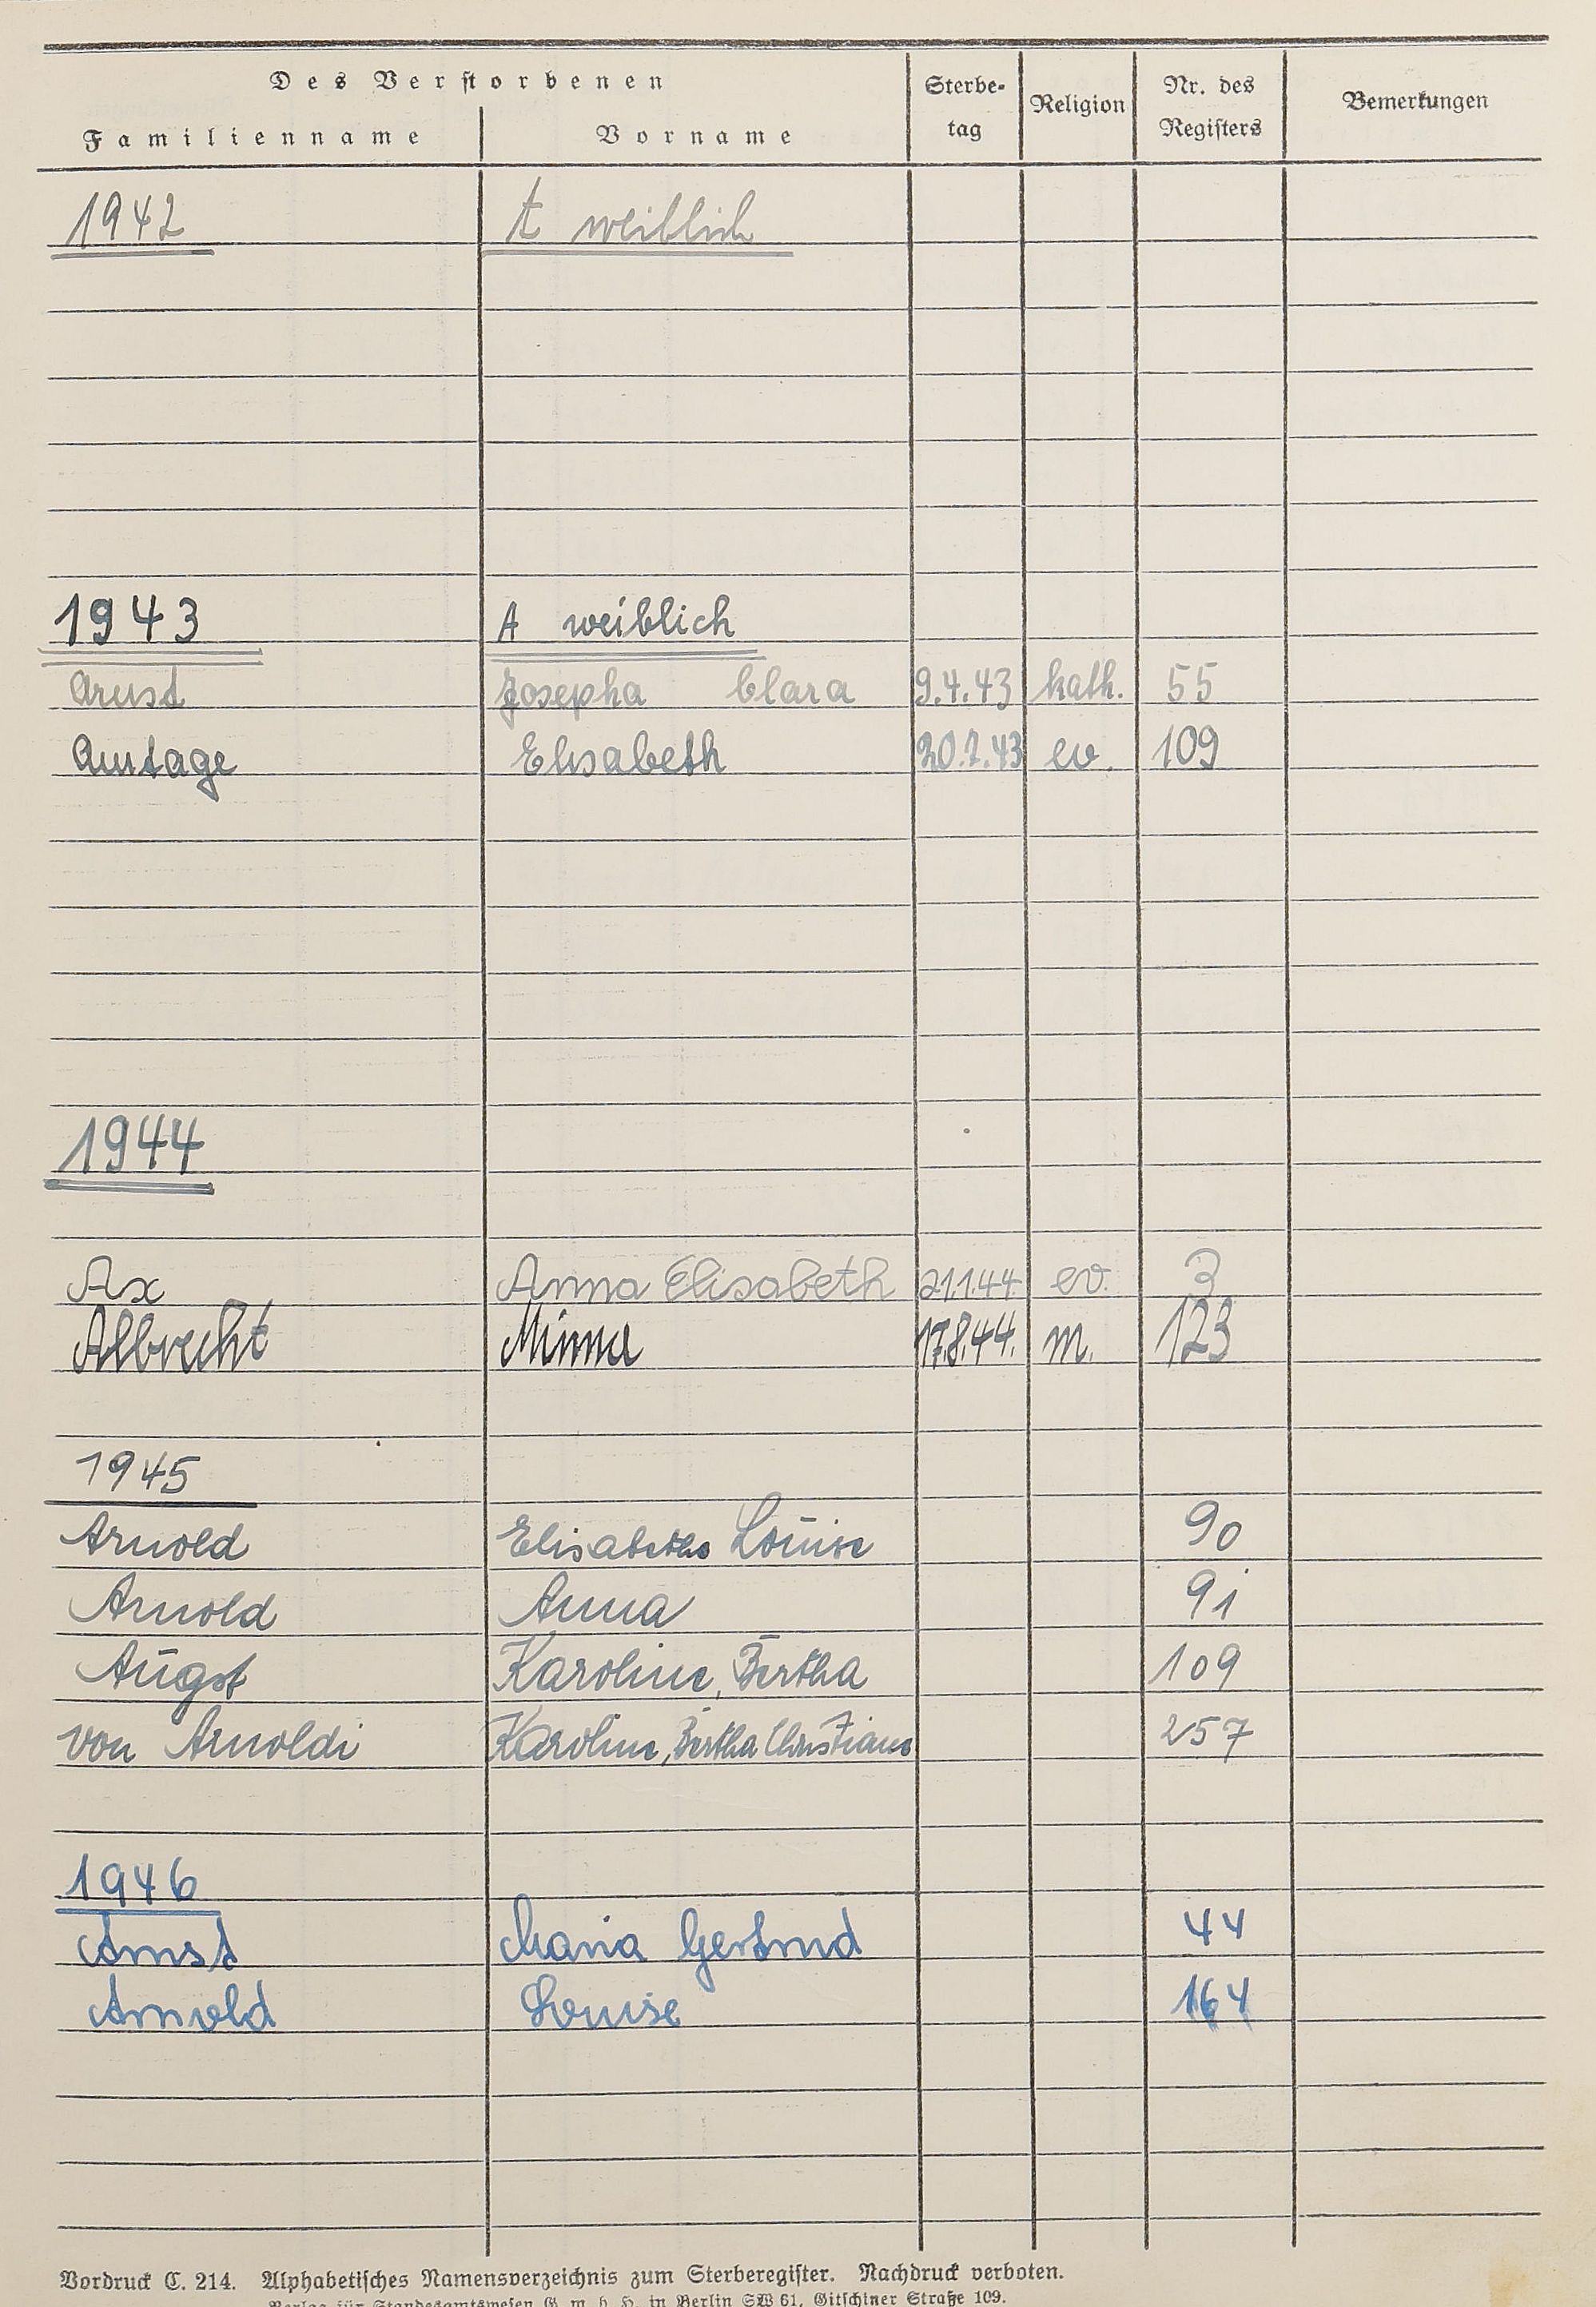 Des Verstorbenen
Familienname Vorname Sterbe-tag Religion Nr. des Registers Bemerkungen
1942 A weiblich
1943 A weiblich
Arust Josepha Clara 9.4.43 kath. 55
Amtage Elisabeth 20.7.43 ev. 109
1944
Ax Anna Elisabeth 21.1.44 ev. 3
Albrecht Minna 17.8.44. m. 123
1945
Arnold Elisabeth Louise 90
Arnold Anna 91
Augst Karoline, Bertha 109
von Arnoldi Karoline, Bertha Christiane 257
1946
Arnst Maria Gertrud 44
Arnold Louise 164
Vordruck C. 214. Alphabetisches Namensverzeichnis zum Sterberegister. Nachdruck verboten.
Verlag für Standesamtswesen G. m. b. H. in Berlin SW 61, Gitschiner Straße 109.